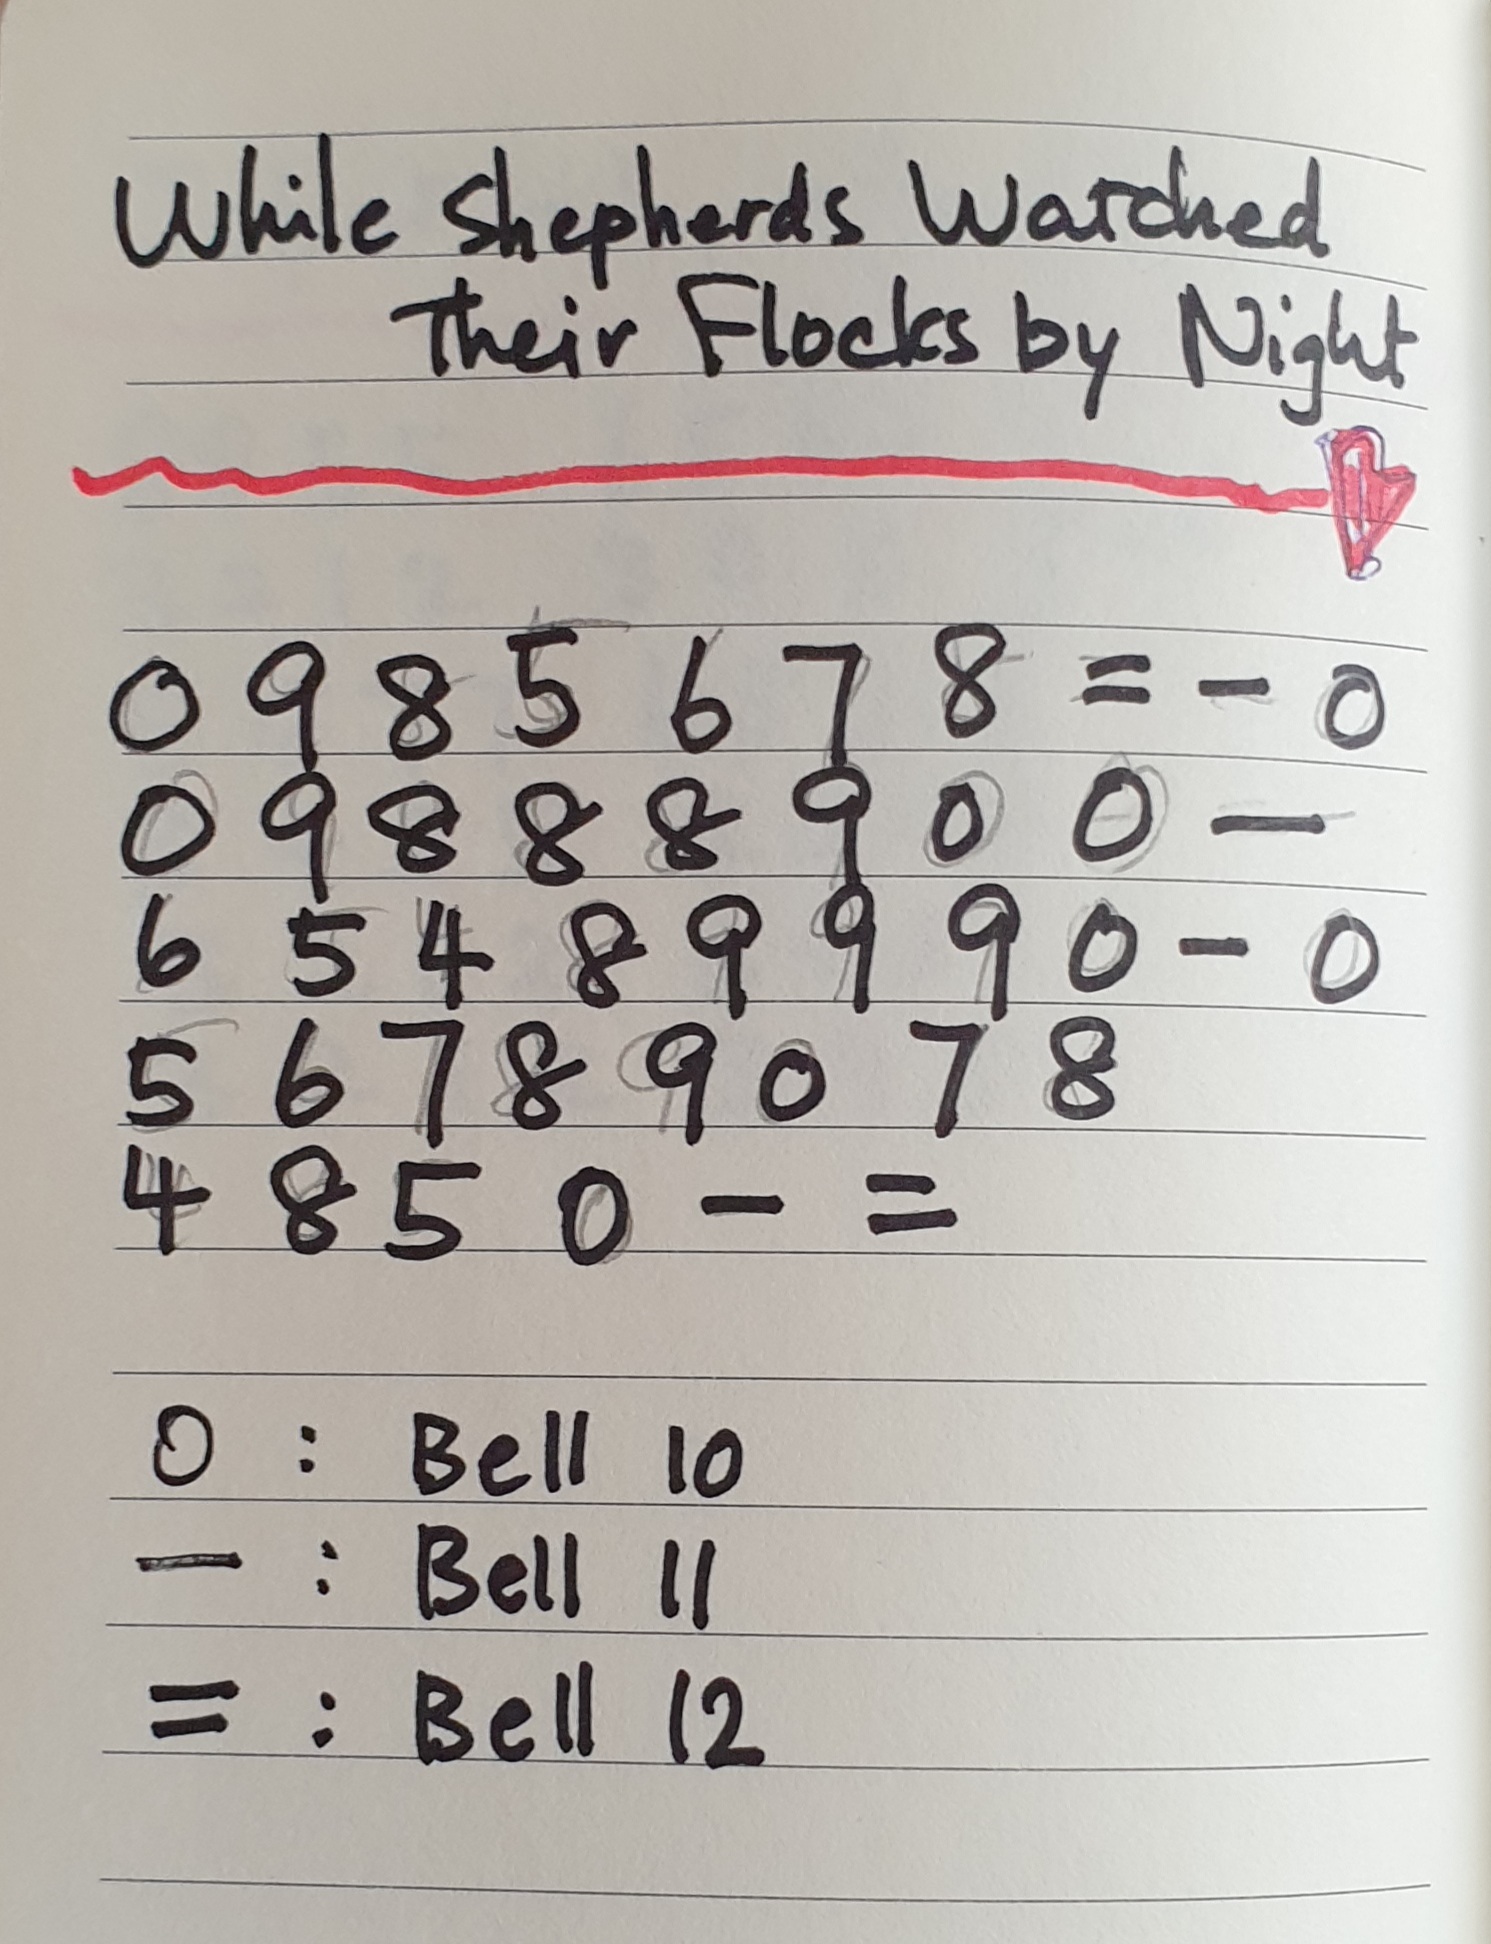 While Shepherds Watched
Their Flocks by Night
0 9 8 5 6 7 8 = - 0
0 9 8 8 8 9 0 0 -
6 5 4 8 9 9 9 0 - 0
5 6 7 8 9 0 7 8
4 8 5 0 - =
0 : Bell 10
- : Bell 11
= : Bell 12